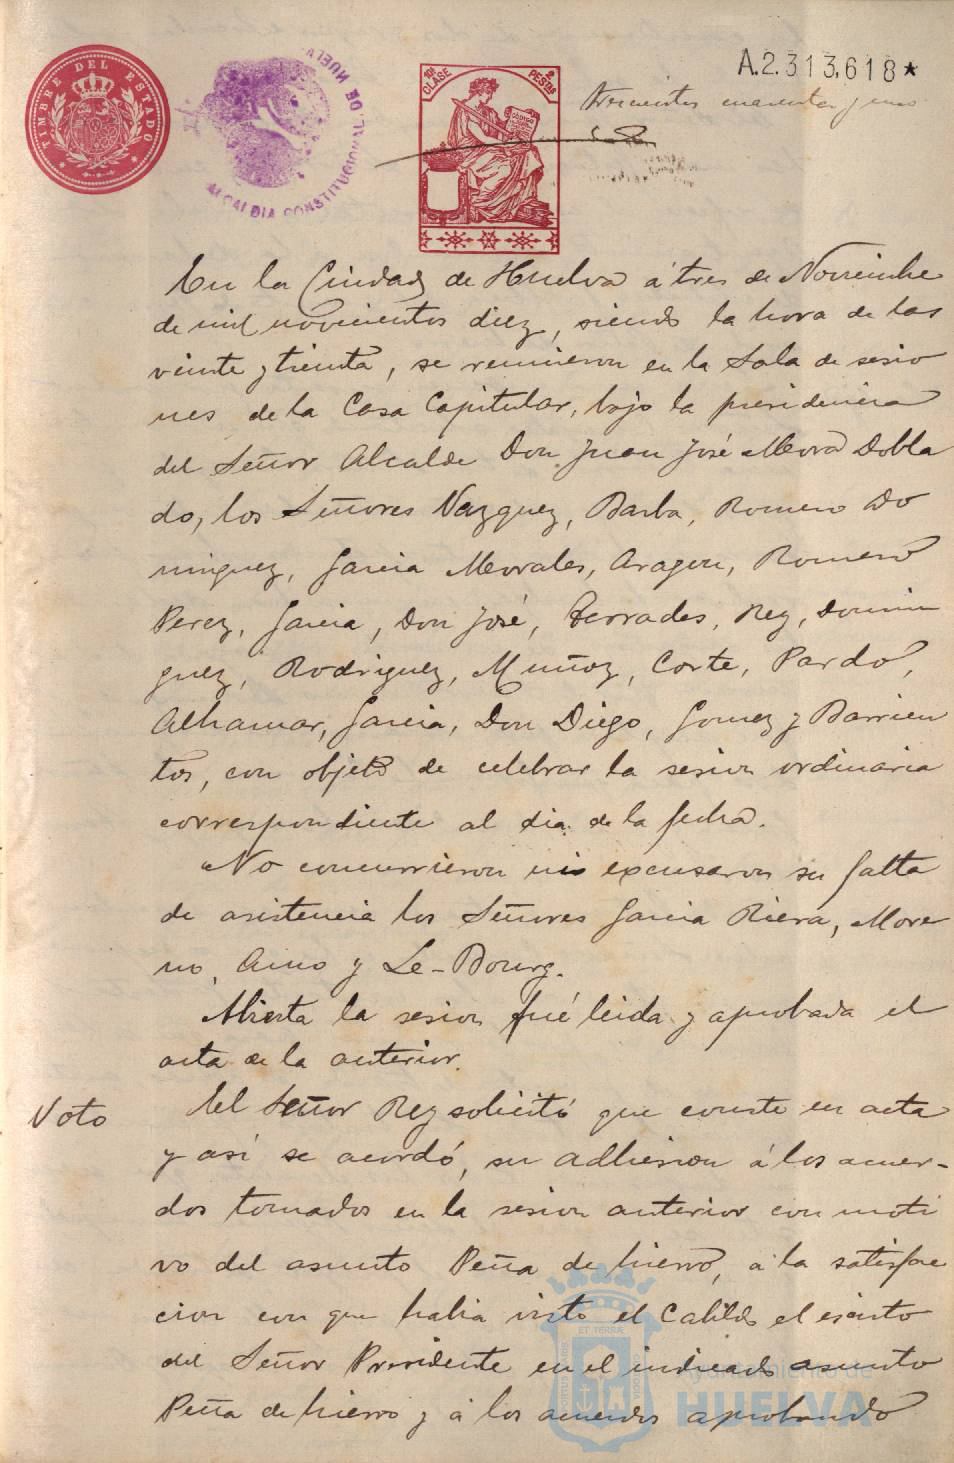 TIMBRE DEL ESTADO
ALCALDIA CONSTITUCIONAL DE HUELVA
10ª CLASE
2 PESTAS
CODIGO
A.2.313.618★
trescientos cuarenta y uno
En la Ciudad de Huelva á tres de Noviembre
de mil novecientos diez, siendo la hora de las
veinte y treinta, se reunieron en la Sala de sesio
nes de la Casa Capitular, bajo la presidencia
del Señor Alcalde Don Juan José Mora Dobla
do, los Señores Vazquez, Barba, Romero Do
minguez, Garcia Morales, Aragon, Romero
Perez, Garcia, Don José, Terrades, Rey, Domin
guez, Rodriguez, Muñoz, Corte, Pardo,
Alhamar, Garcia, Don Diego, Gomez y Barrien
tos, con objeto de celebrar la sesion ordinaria
correspondiente al dia de la fecha.
No concurrieron ni excusaron su falta
de asistencia los Señores Garcia Riera, More
no, Amo y Le-Bourg.
Abierta la sesion fué leida y aprobada el
acta de la anterior.
Voto
El Señor Rey solicitó que conste en acta
y así se acordó, su adhesion á los acuer-
dos tomados en la sesion anterior con moti
vo del asunto Peña de hierro, á la satisfac
cion con que habia visto el Cabildo el escrito
del Señor Presidente en el indicado asunto
Peña de hierro y á los acuerdos aprobando
ET TERRÆ
PORTUS MARIS
CUSTODIA
Ayuntamiento de
HUELVA